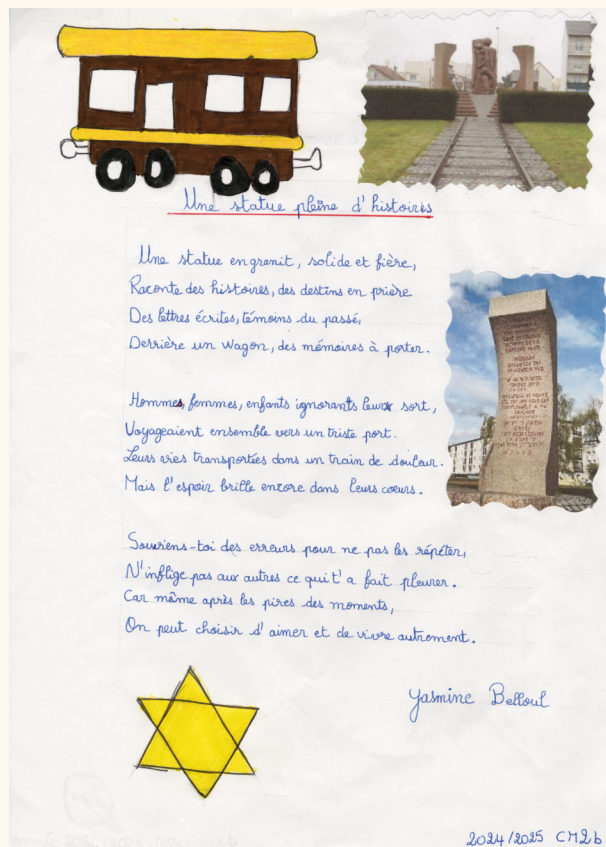 Une statue pleine d'histoires
Une statue en granit, solide et fière,
Raconte des histoires, des destins en prière
Des lettres écrites, témoins du passé,
Derrière un wagon, des mémoires à porter.
Hommes, femmes, enfants ignorants leur sort,
Voyageaient ensemble vers un triste port.
Leurs vies transportées dans un train de douleur.
Mais l'espoir brille encore dans leurs cœurs.
Souviens-toi des erreurs pour ne pas les répéter,
N'inflige pas aux autres ce qui t'a fait pleurer.
Car même après les pires des moments,
On peut choisir d'aimer et de vivre autrement.
Yasmine Belloul
2024/2025 CM2b